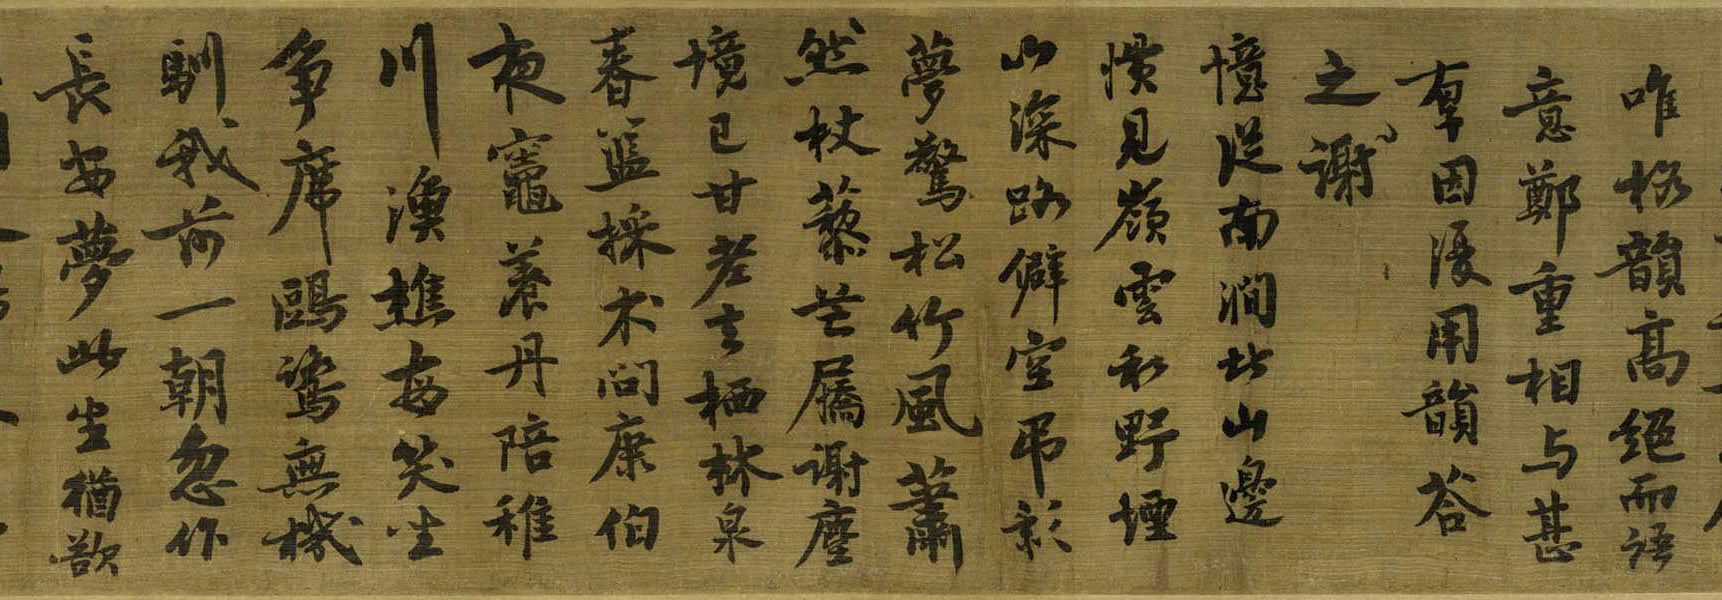 唯格韻高絕而語
意鄭重相与甚
厚因復用韻荅
之謝
憶從南澗北山邊
慣見嶺雲和野煙
山深路僻空弔影
夢驚松竹風蕭
然杖藜芒屩謝塵
境已甘老去栖林泉
春籃採朮問康伯
夜竈養丹陪稚
川漁樵每笑坐
爭席鷗鷺無機
馴我前一朝忽作
長安夢此生猶欲